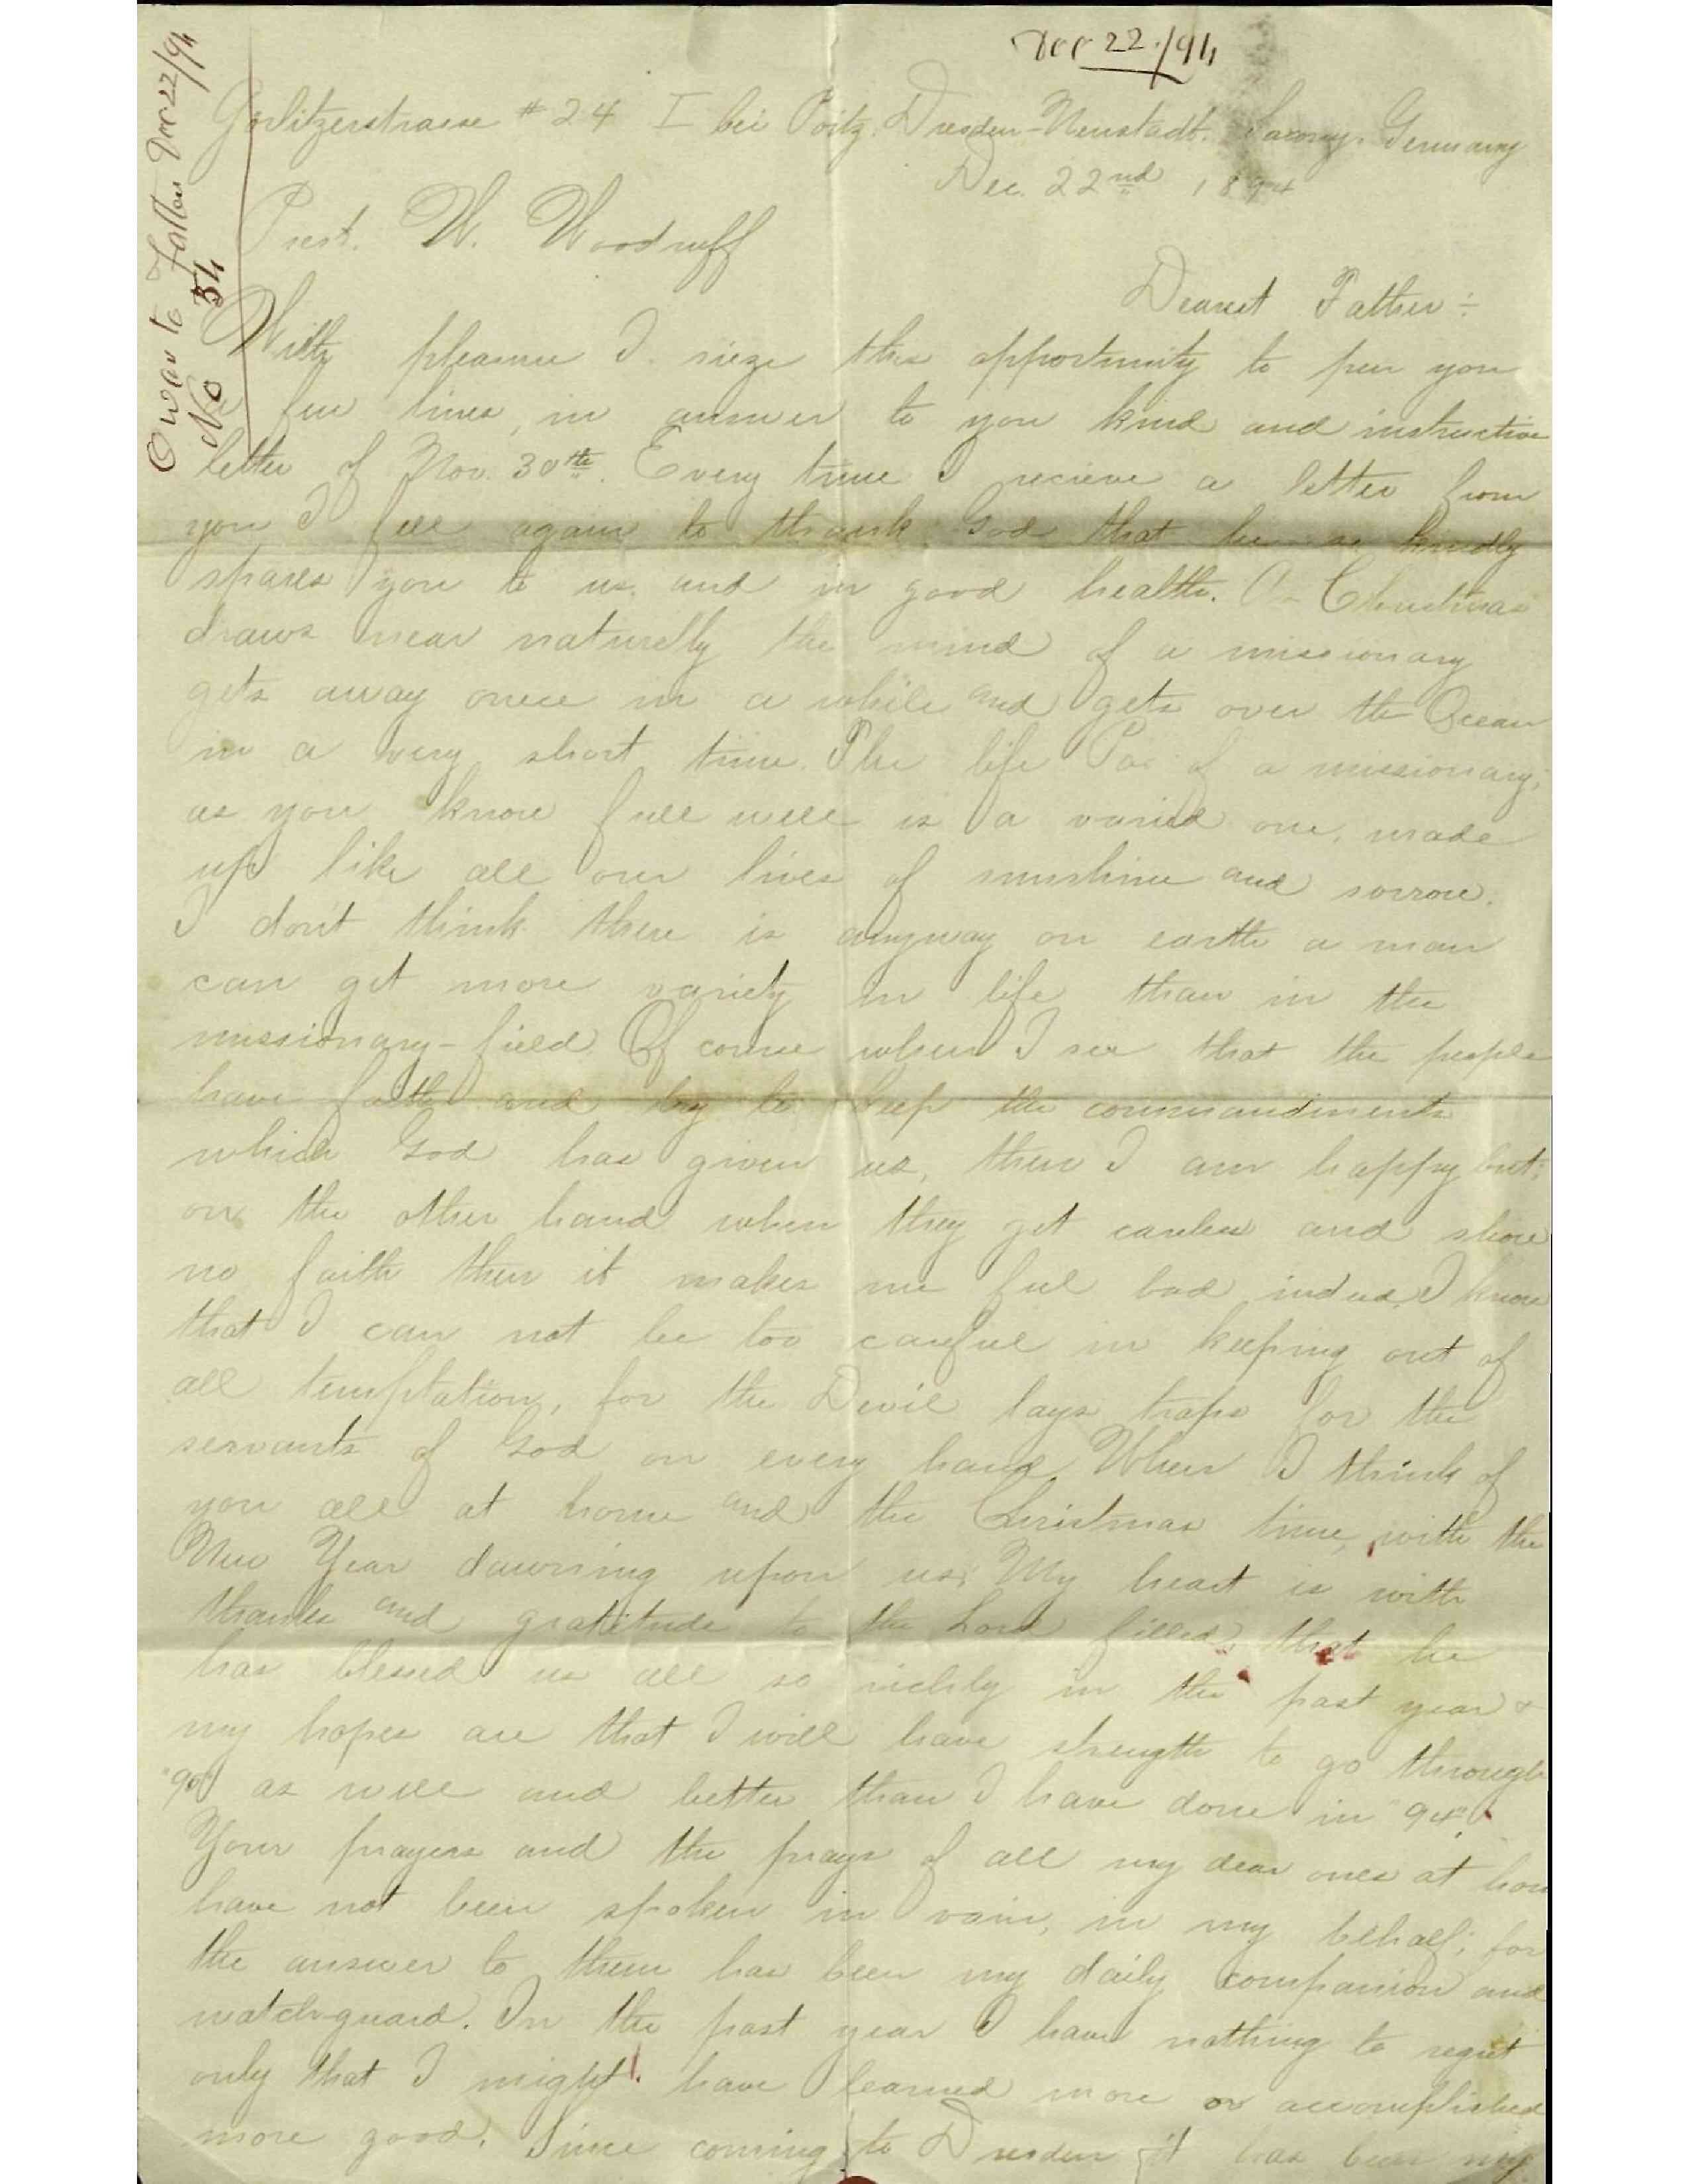 Dec 22./94
Owen to Father Dec 22/94
No 34
Görlitzerstrasse # 24 I bei Poitz. Dresden-Neustadt. Saxony. Germany
Dec. 22nd 1894
Prest. W. Woodruff
Dearest Father:
With pleasure I sieze this opportunity to pen you
a few lines, in answer to you kind and instructive
letter of Nov. 30th. Every time I recieve a letter from
you I feel again to thank God that he so kindly
spares you to us, and in good health. As Christmas
draws near naturelly the mind of a missionary
gets away once in a while and gets over the Ocean
in a very short time. The life Pa of a missionary,
as you know full well is a varied one, made
up like all our lives of sunshine and sorrow.
I don't think there is anyway on earth a man
can get more variety in life than in the
missionary-field. Of course when I see that the people
have faith and try to keep the commandments
which God has given us, then I am happy but;
on the other hand when they get careless and show
no faith then it makes me feel bad indeed. I know
that I can not be too careful in keeping out of
all temptation, for the Devil lays traps for the
servants of God on every hand. When I think of
you all at home and the Christmas time, with the
New Year dawning upon us; My heart is with
thanks and gratitude to the Lord filled, that he
has blessed us all so richly in the past year &
my hopes are that I will have strength to go through
"95" as well and better than I have done in "94".
Your prayers and the prays of all my dear ones at hom
have not been spoken in vain, in my behalf; for
the answer to them has been my daily companion and
watch-guard. In the past year I have nothing to regret
only that I might have learned more or accomplished
more good. Since coming to Dresden it has been my